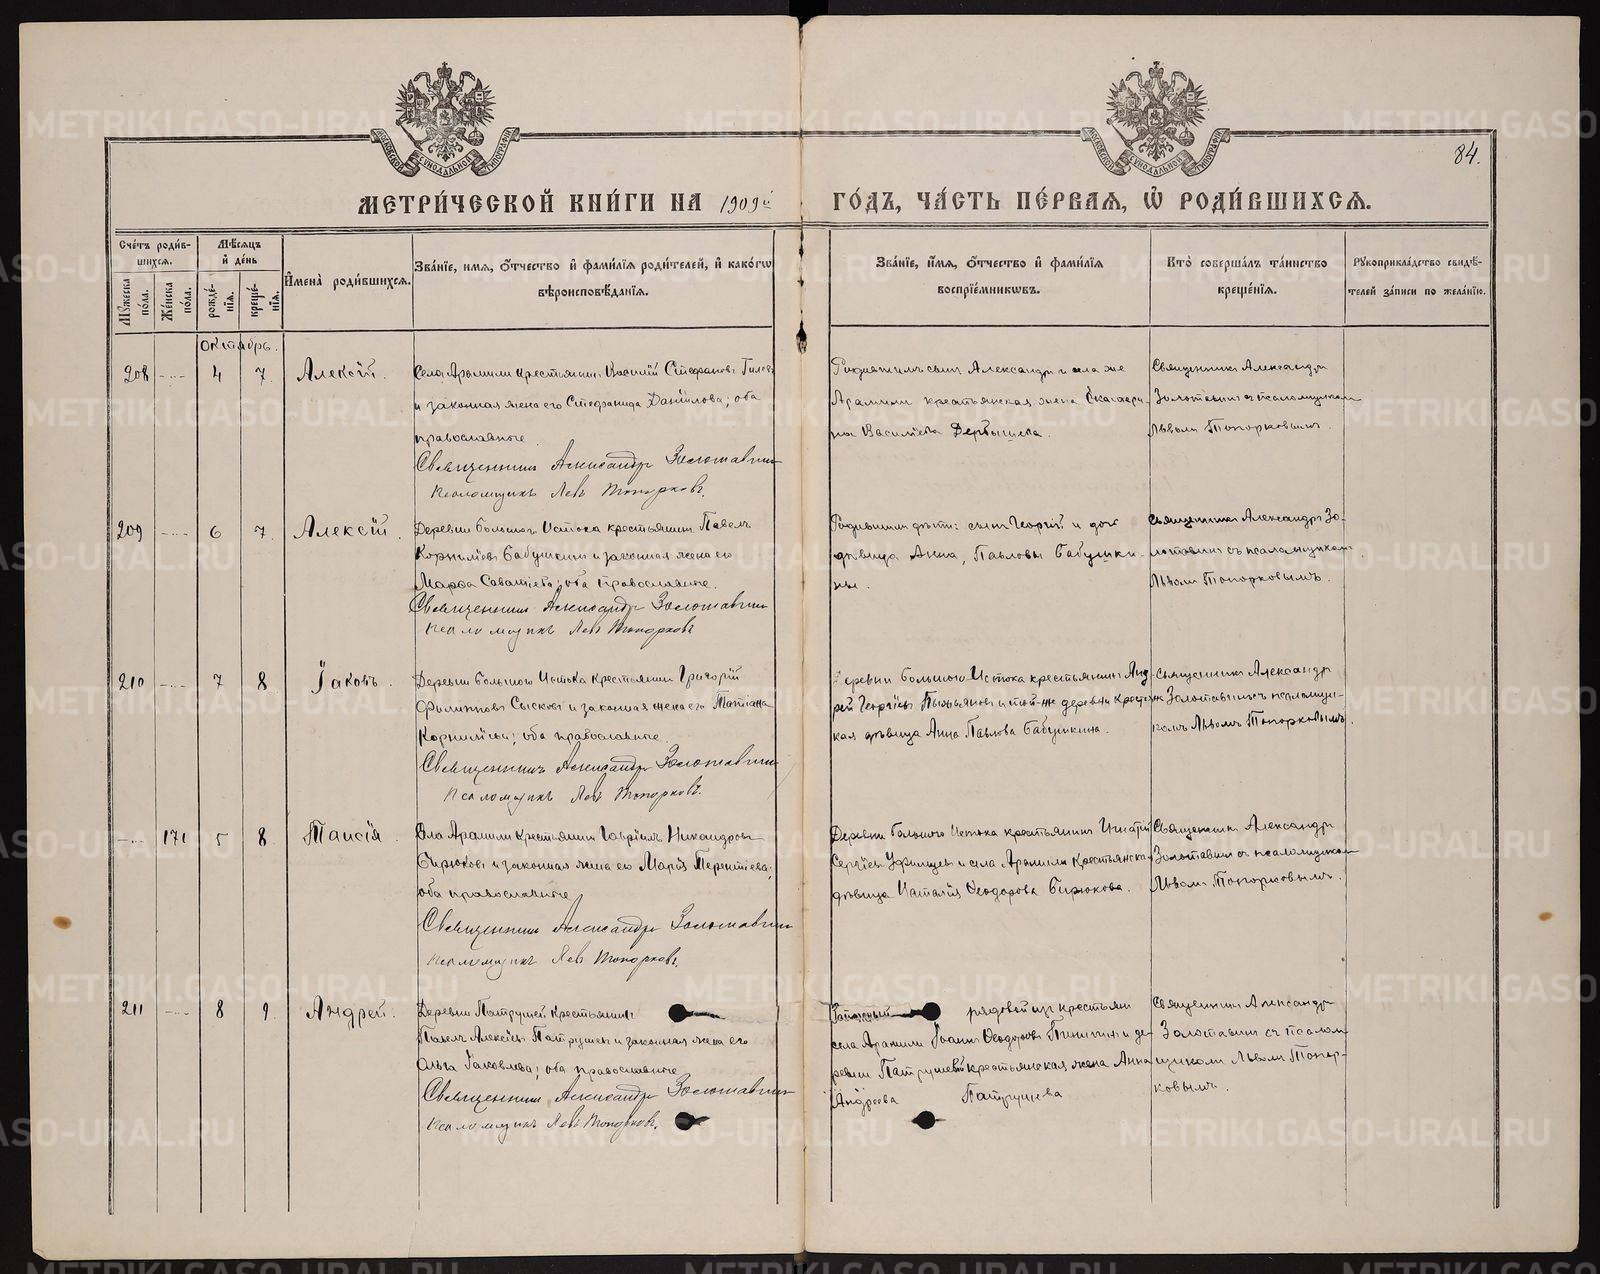 МОСКОВСКОЙ СѴНОДАЛЬНОЙ ТИПОГРАФІИ
МОСКОВСКОЙ СѴНОДАЛЬНОЙ ТИПОГРАФІИ
84.
МЕТРИ́ЧЕСКОЙ КНИ́ГИ НА 1909й ГО́ДЪ, ЧА́СТЬ ПЕ́РВАЯ, Ѽ РОДИ́ВШИХСЯ.
Сче́тъ роди́в-
шихся.
Му́жеска по́ла.
Же́нска по́ла.
Мѣ́сяцъ
и҆ де́нь
рожде́-
нїя.
креще́-
нїя.
И҆мена̀ роди́вшихся.
Зва́нїе, и҆мя, ѻ҆́тчество и҆ фами́лїя роди́телей, и҆ како́гѡ
вѣроисповѣ́данїя.
Зва́нїе, и҆́мя, ѻ҆́тчество и҆ фами́лїя
воспрїе́мникѡвъ.
Кто̀ соверша́лъ та́инство
креще́нїя.
Рꙋкоприкла́дство свидѣ́-
телей за́писи по жела́нїю.
Октябрь.
208 4 7. Алексій.
Села Арамили крестьянинъ Василій Стефановъ Гилевъ
и законная жена его Стефанида Данилова; оба
православные.
Священникъ Александръ Золотавинъ
Псаломщикъ Левъ Топорковъ.
сынъ Александръ и села же
Арамили крестьянская жена Екатери-
на Васильева Дербышева.
Священникъ Александръ
Золотавинъ съ псаломщикомъ
Львомъ Топорковымъ.
209 6 7. Алексій.
Деревни Большого Истока крестьянинъ Павелъ
Корниліевъ Бабушкинъ и законная жена его
Марѳа Саватіева; оба православные.
Священникъ Александръ Золотавинъ
Псаломщикъ Левъ Топорковъ
Родившихъ дѣти: сынъ Георгій и дочь
дѣвица Анна, Павловы Бабушки-
ны.
Священникъ Александръ Зо-
лотавинъ съ псаломщикомъ
Львомъ Топорковымъ.
210 7 8 Іаковъ.
Деревни Большого Истока крестьянинъ Григорій
Филипповъ Сысковъ и законная жена его Татіана
Корниліева; оба православные.
Священникъ Александръ Золотавинъ
Псаломщикъ Левъ Топорковъ.
Деревни Большого Истока крестьянинъ Анд-
рей Георгіевъ и той-же деревни крестьянс-
кая дѣвица Анна Павлова Бабушкина.
Священникъ Александръ
Золотавинъ съ псаломщи-
комъ Львомъ Топорковымъ.
171 5 8 Таисія.
Села Арамили крестьянинъ Гавріилъ Никандровъ
Бирюковъ и законная жена его Марія Терентіева;
оба православные
Священникъ Александръ Золотавинъ
Псаломщикъ Левъ Топорковъ.
Деревни Большого Истока крестьянинъ Игнатій
Сергіевъ Уфимцевъ и села Арамили крестьянская
дѣвица Наталія Ѳеодорова Бирюкова.
Священникъ Александръ
Золотавинъ съ псаломщикомъ
Львомъ Топорковымъ.
211 8 9. Андрей.
Деревни Патрушей крестьянинъ
Павелъ Алексіевъ Патрушевъ и законная жена его
Ольга Іаковлева; оба православные
Священникъ Александръ Золотавинъ
Псаломщикъ Левъ Топорковъ.
Запасный рядовой изъ крестьянъ
села Арамили Іоаннъ Ѳеодоровъ и де-
ревни Патрушей крестьянская жена Анна
Андреева Патрушева
Священникъ Александръ
Золотавинъ съ псалом-
щикомъ Львомъ Топор-
ковымъ.
METRIKI.GASO-URAL.RU